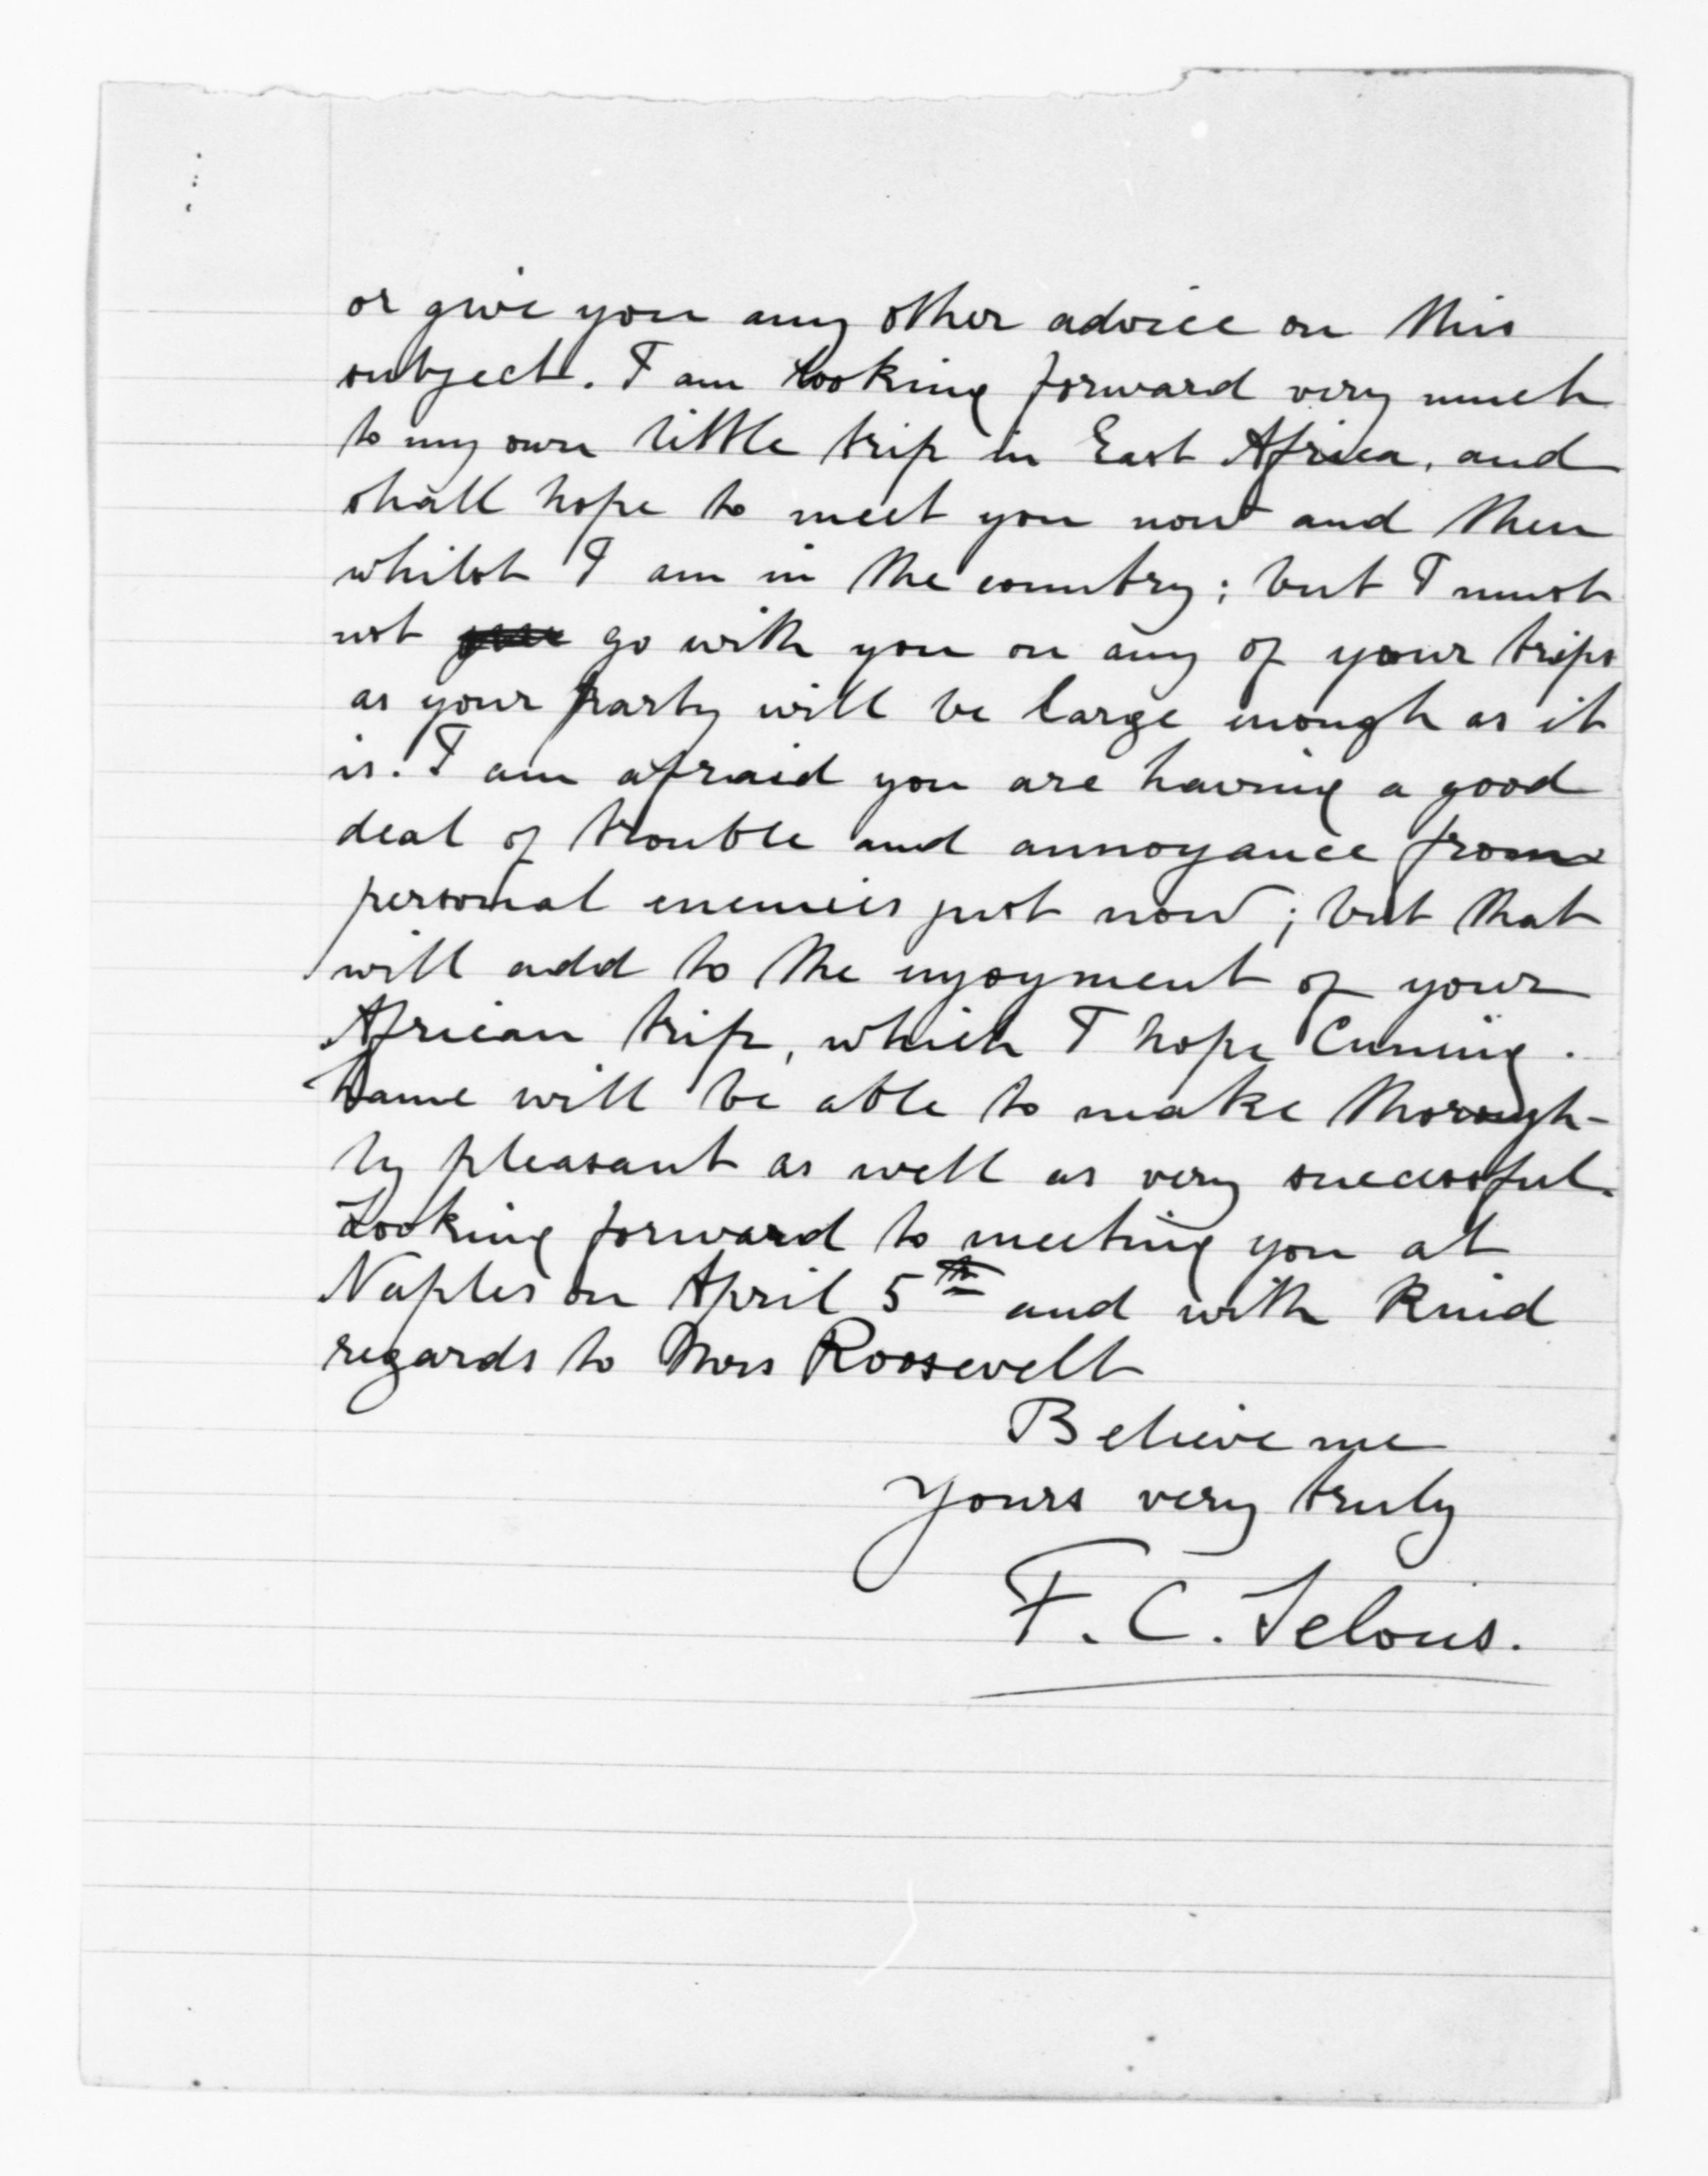 or give you any other advice on this
subject. I am looking forward very much
to my own little trip in East Africa, and
shall hope to meet you now and then
whilst I am in the country; but I must
not go with you on any of your trips
as your party will be large enough as it
is. I am afraid you are having a good
deal of trouble and annoyance from
personal enemies just now; but that
will add to the enjoyment of your
African trip, which I hope Cuning-
hame will be able to make thorough-
ly pleasant as well as very successful.
Looking forward to meeting you at
Naples on April 5th and with kind
regards to Mrs Roosevelt
Believe me
Yours very truly
F. C. Selous.